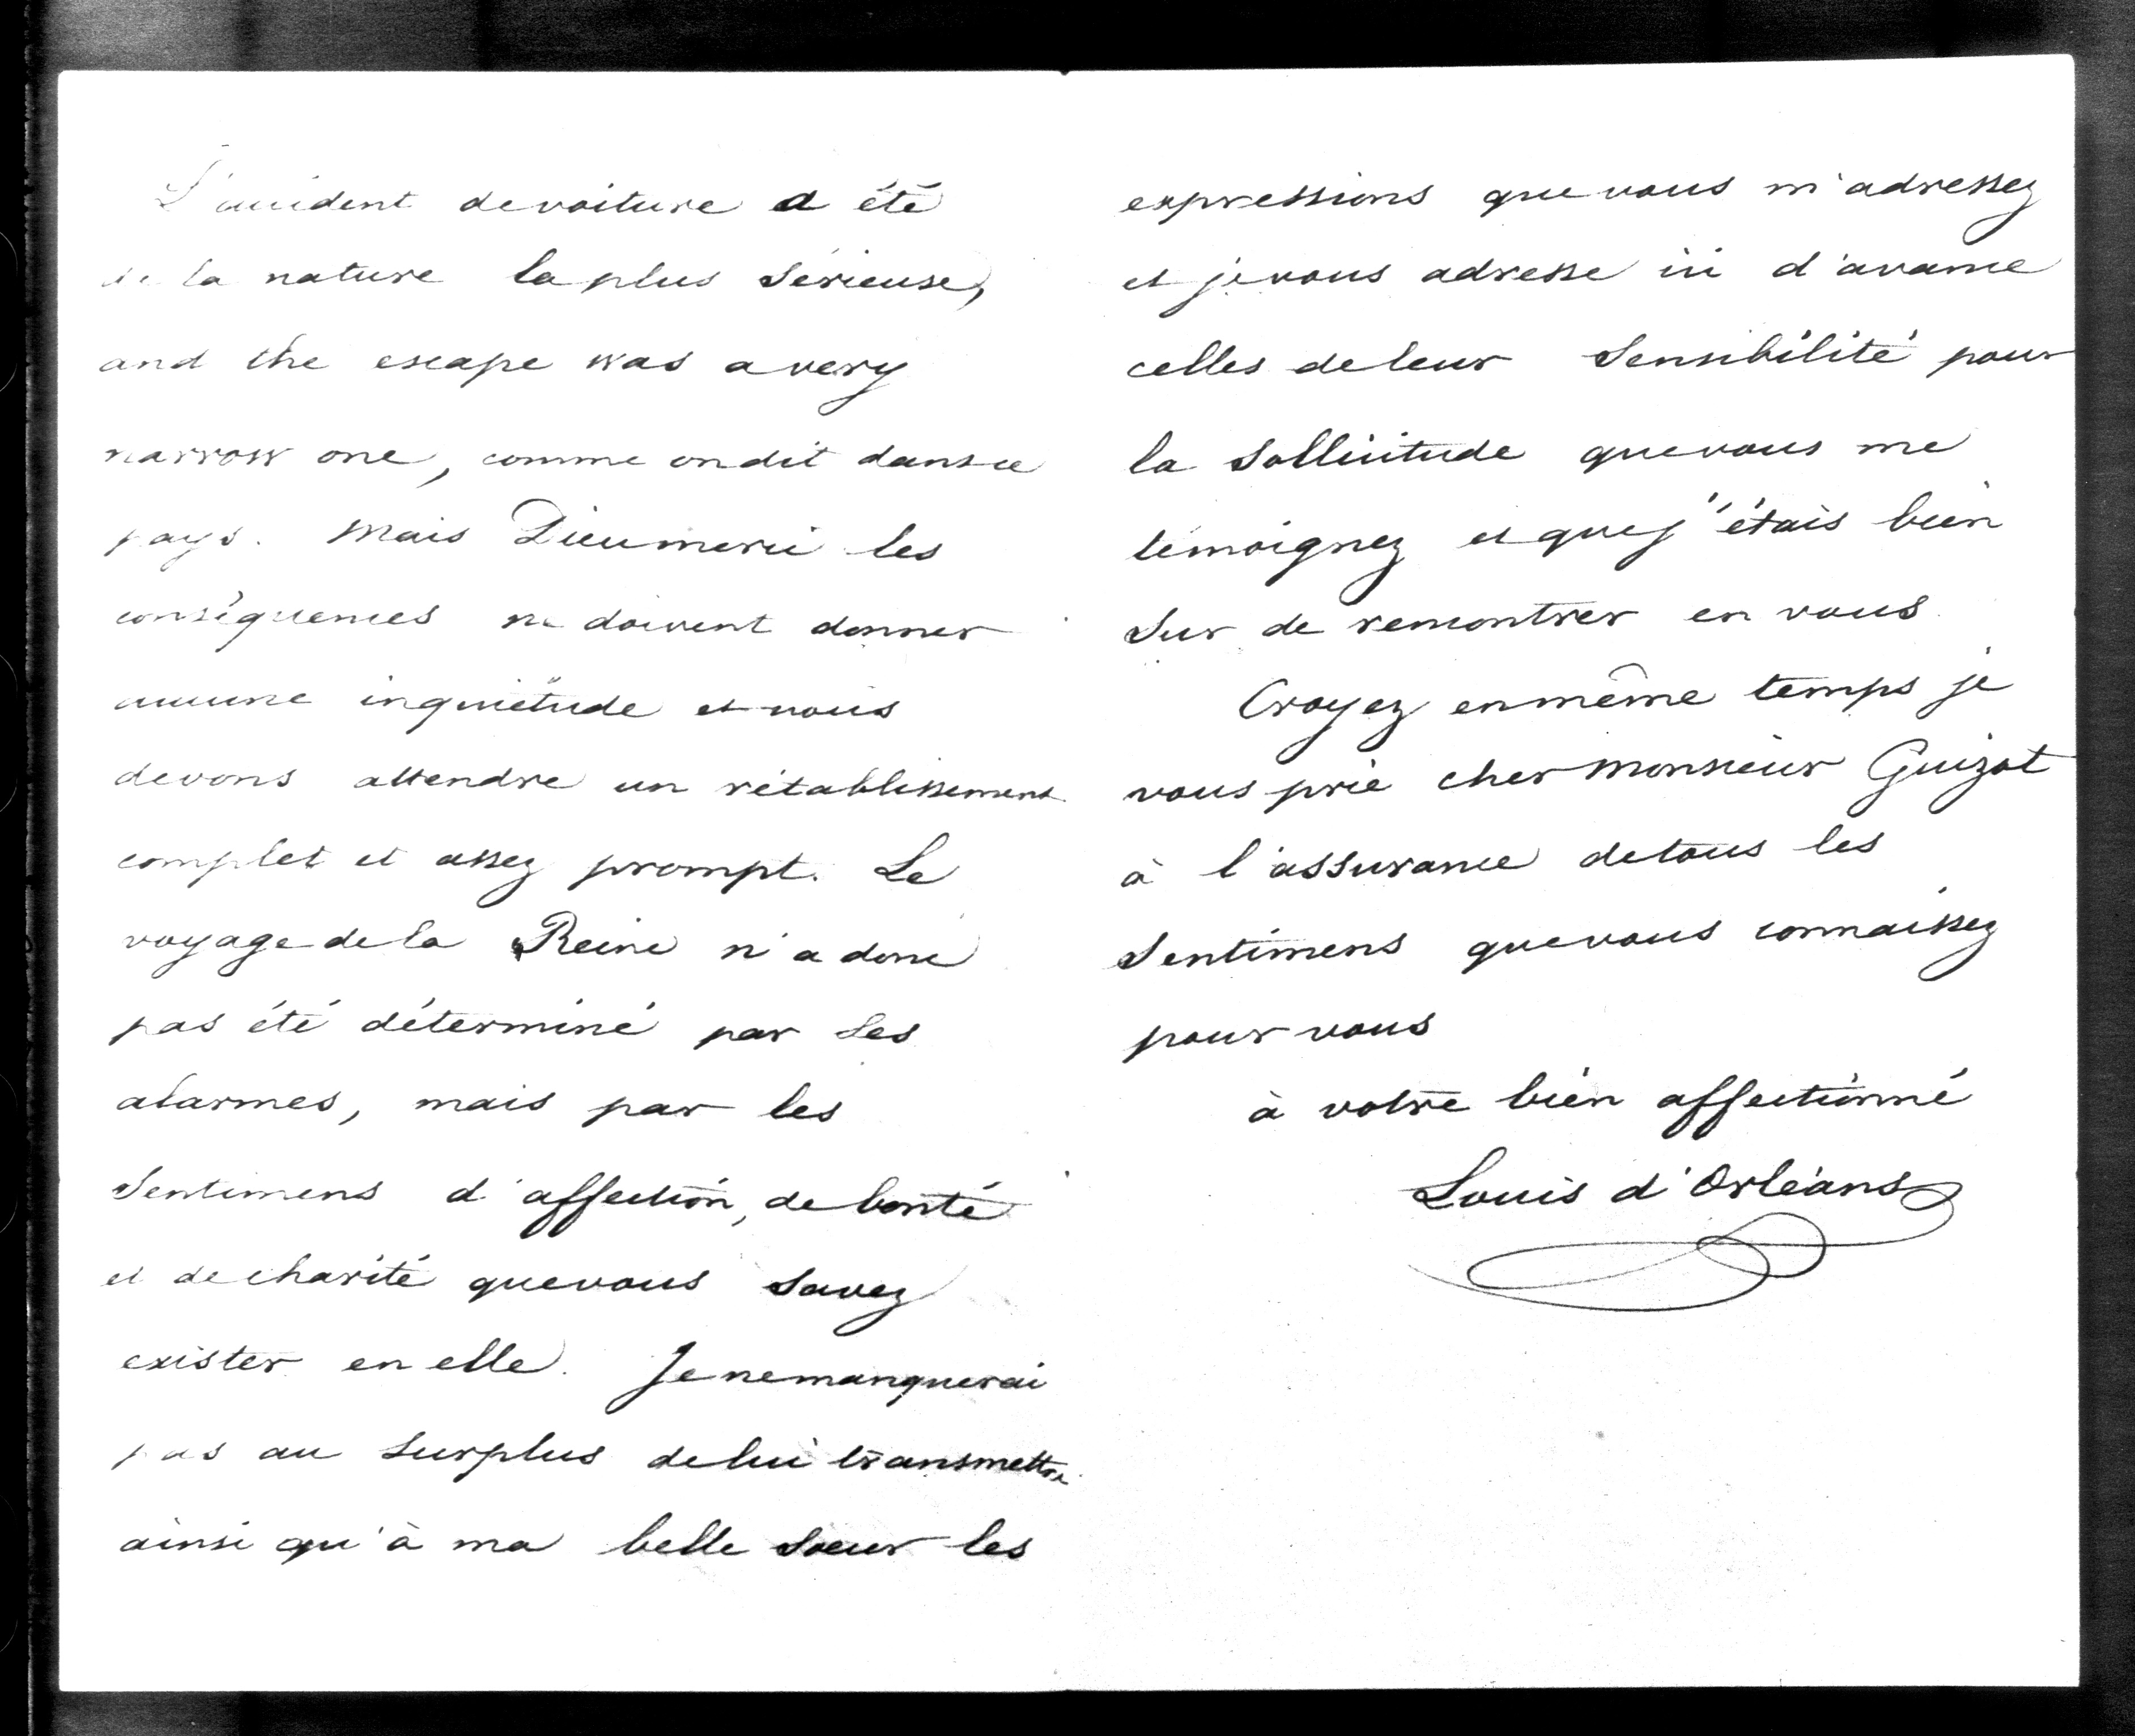 L'accident de voiture a été
de la nature la plus sérieuse,
and the escape was a very
narrow one, comme on dit dans ce
pays. Mais Dieu merci les
conséquences ne doivent donner
aucune inquiétude et nous
devons attendre un rétablissement
complet et assez prompt. Le
voyage de la Reine n'a donc
pas été déterminé par les
alarmes, mais par les
sentimens d'affection, de bonté
et de charité que vous savez
exister en elle. Je ne manquerai
pas au surplus de lui transmettre
ainsi qu'à ma belle soeur les
expressions que vous m'adressez
et je vous adresse ici d'avance
celles de leur sensibilité pour
la sollicitude que vous me
témoignez et que j'étais bien
sur de rencontrer en vous
Croyez en même temps je
vous prie cher monsieur Guizot
à l'assurance de tous les
sentimens que vous connaissez
pour vous
à votre bien affectionné
Louis d'Orléans